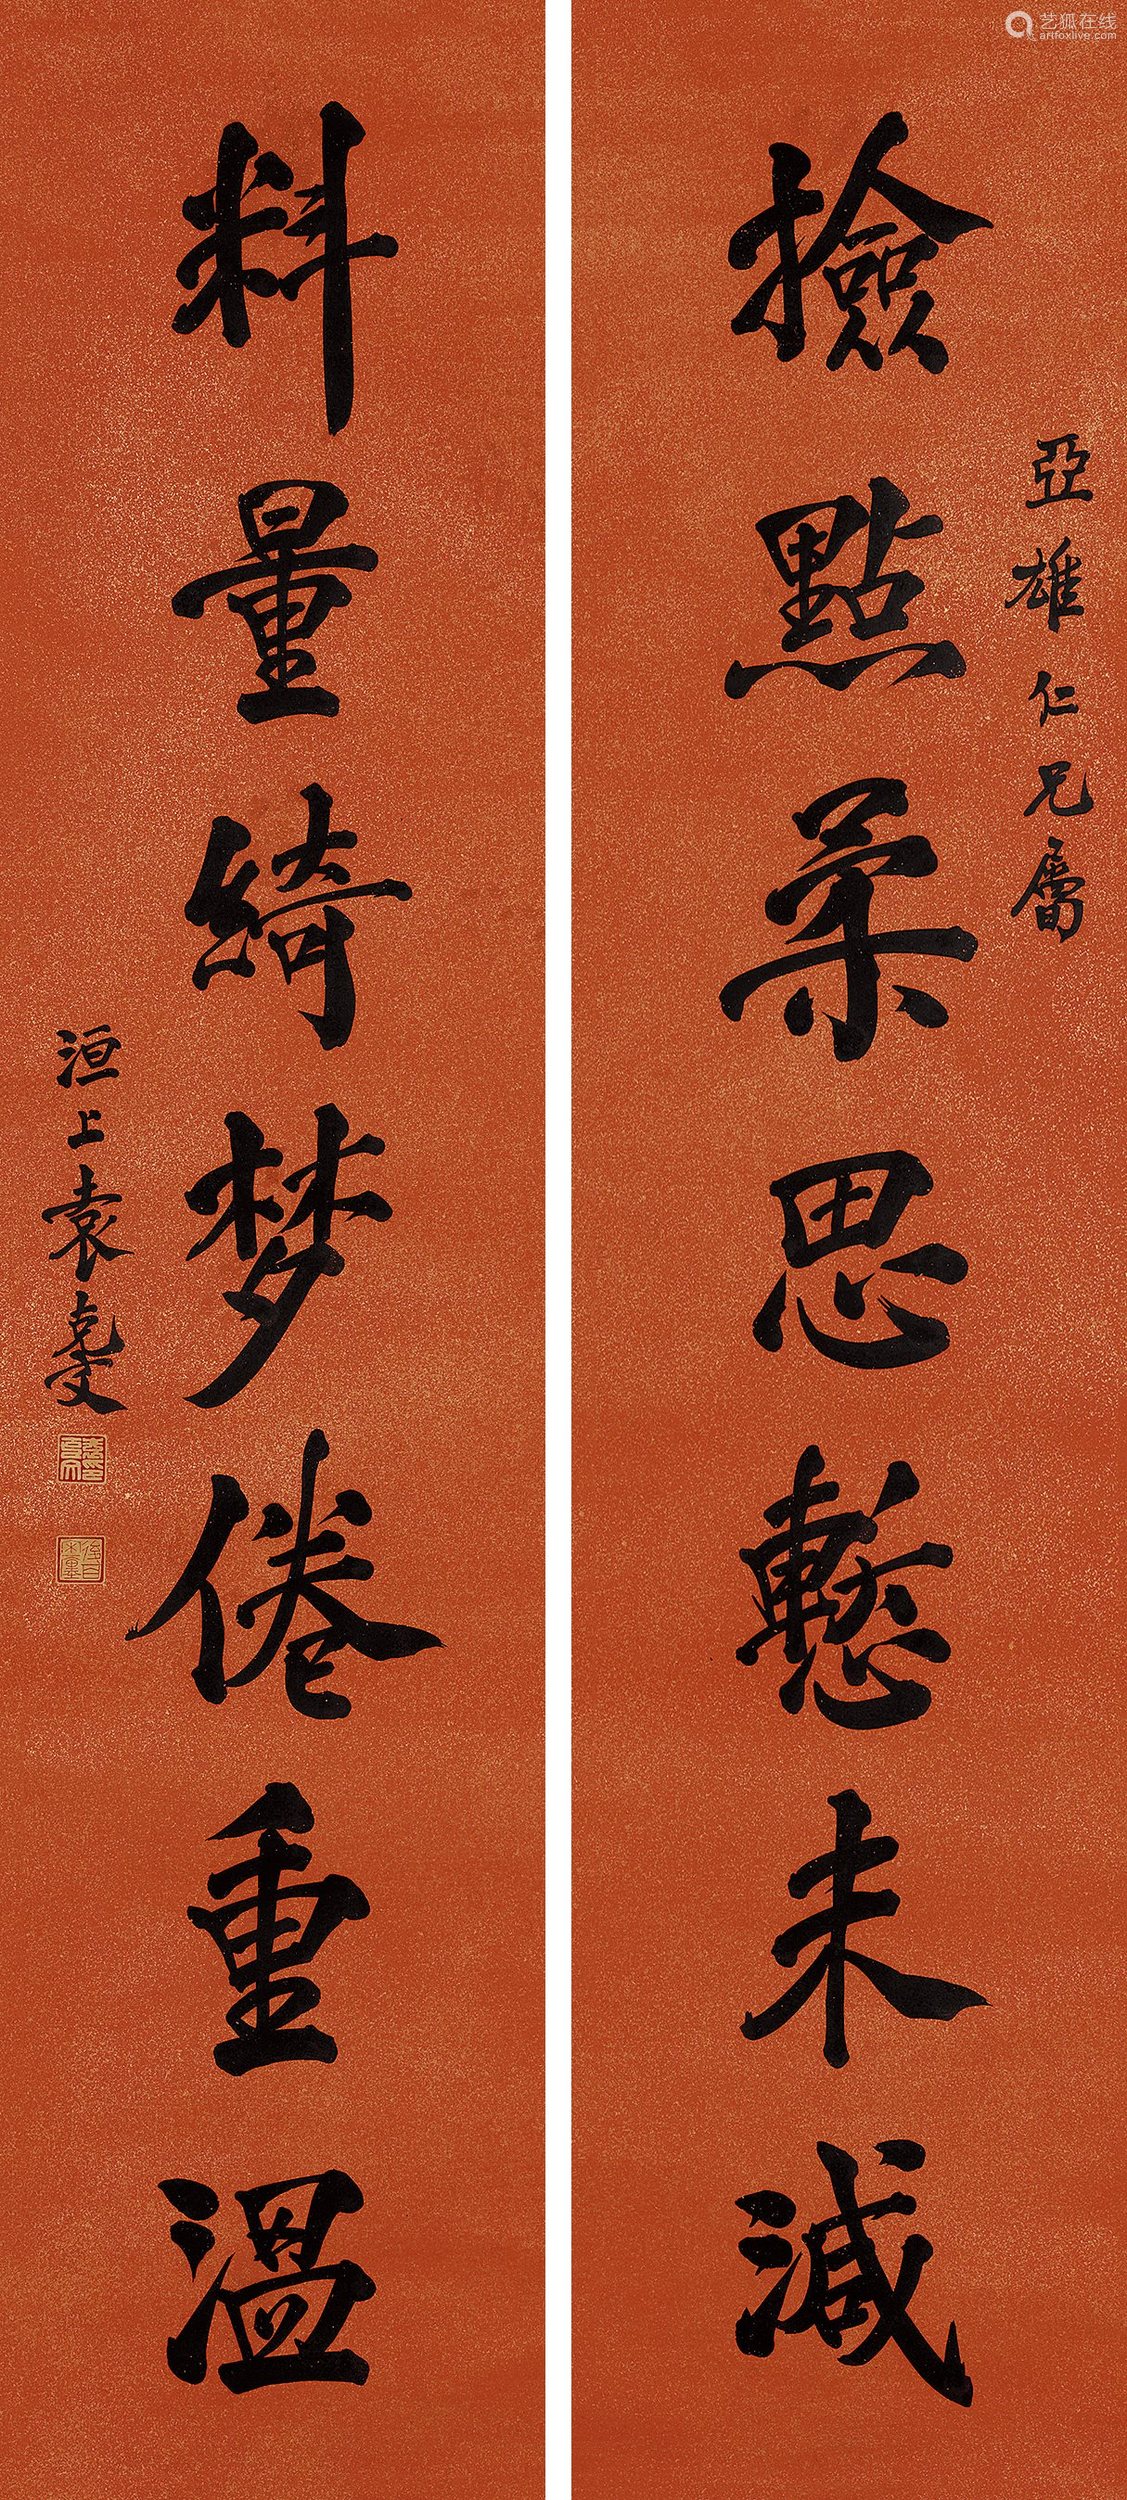 艺狐在线
artfoxlive.com
亞雄仁兄屬
撿點柔思慙未減
料量綺梦倦重溫
洹上袁克文